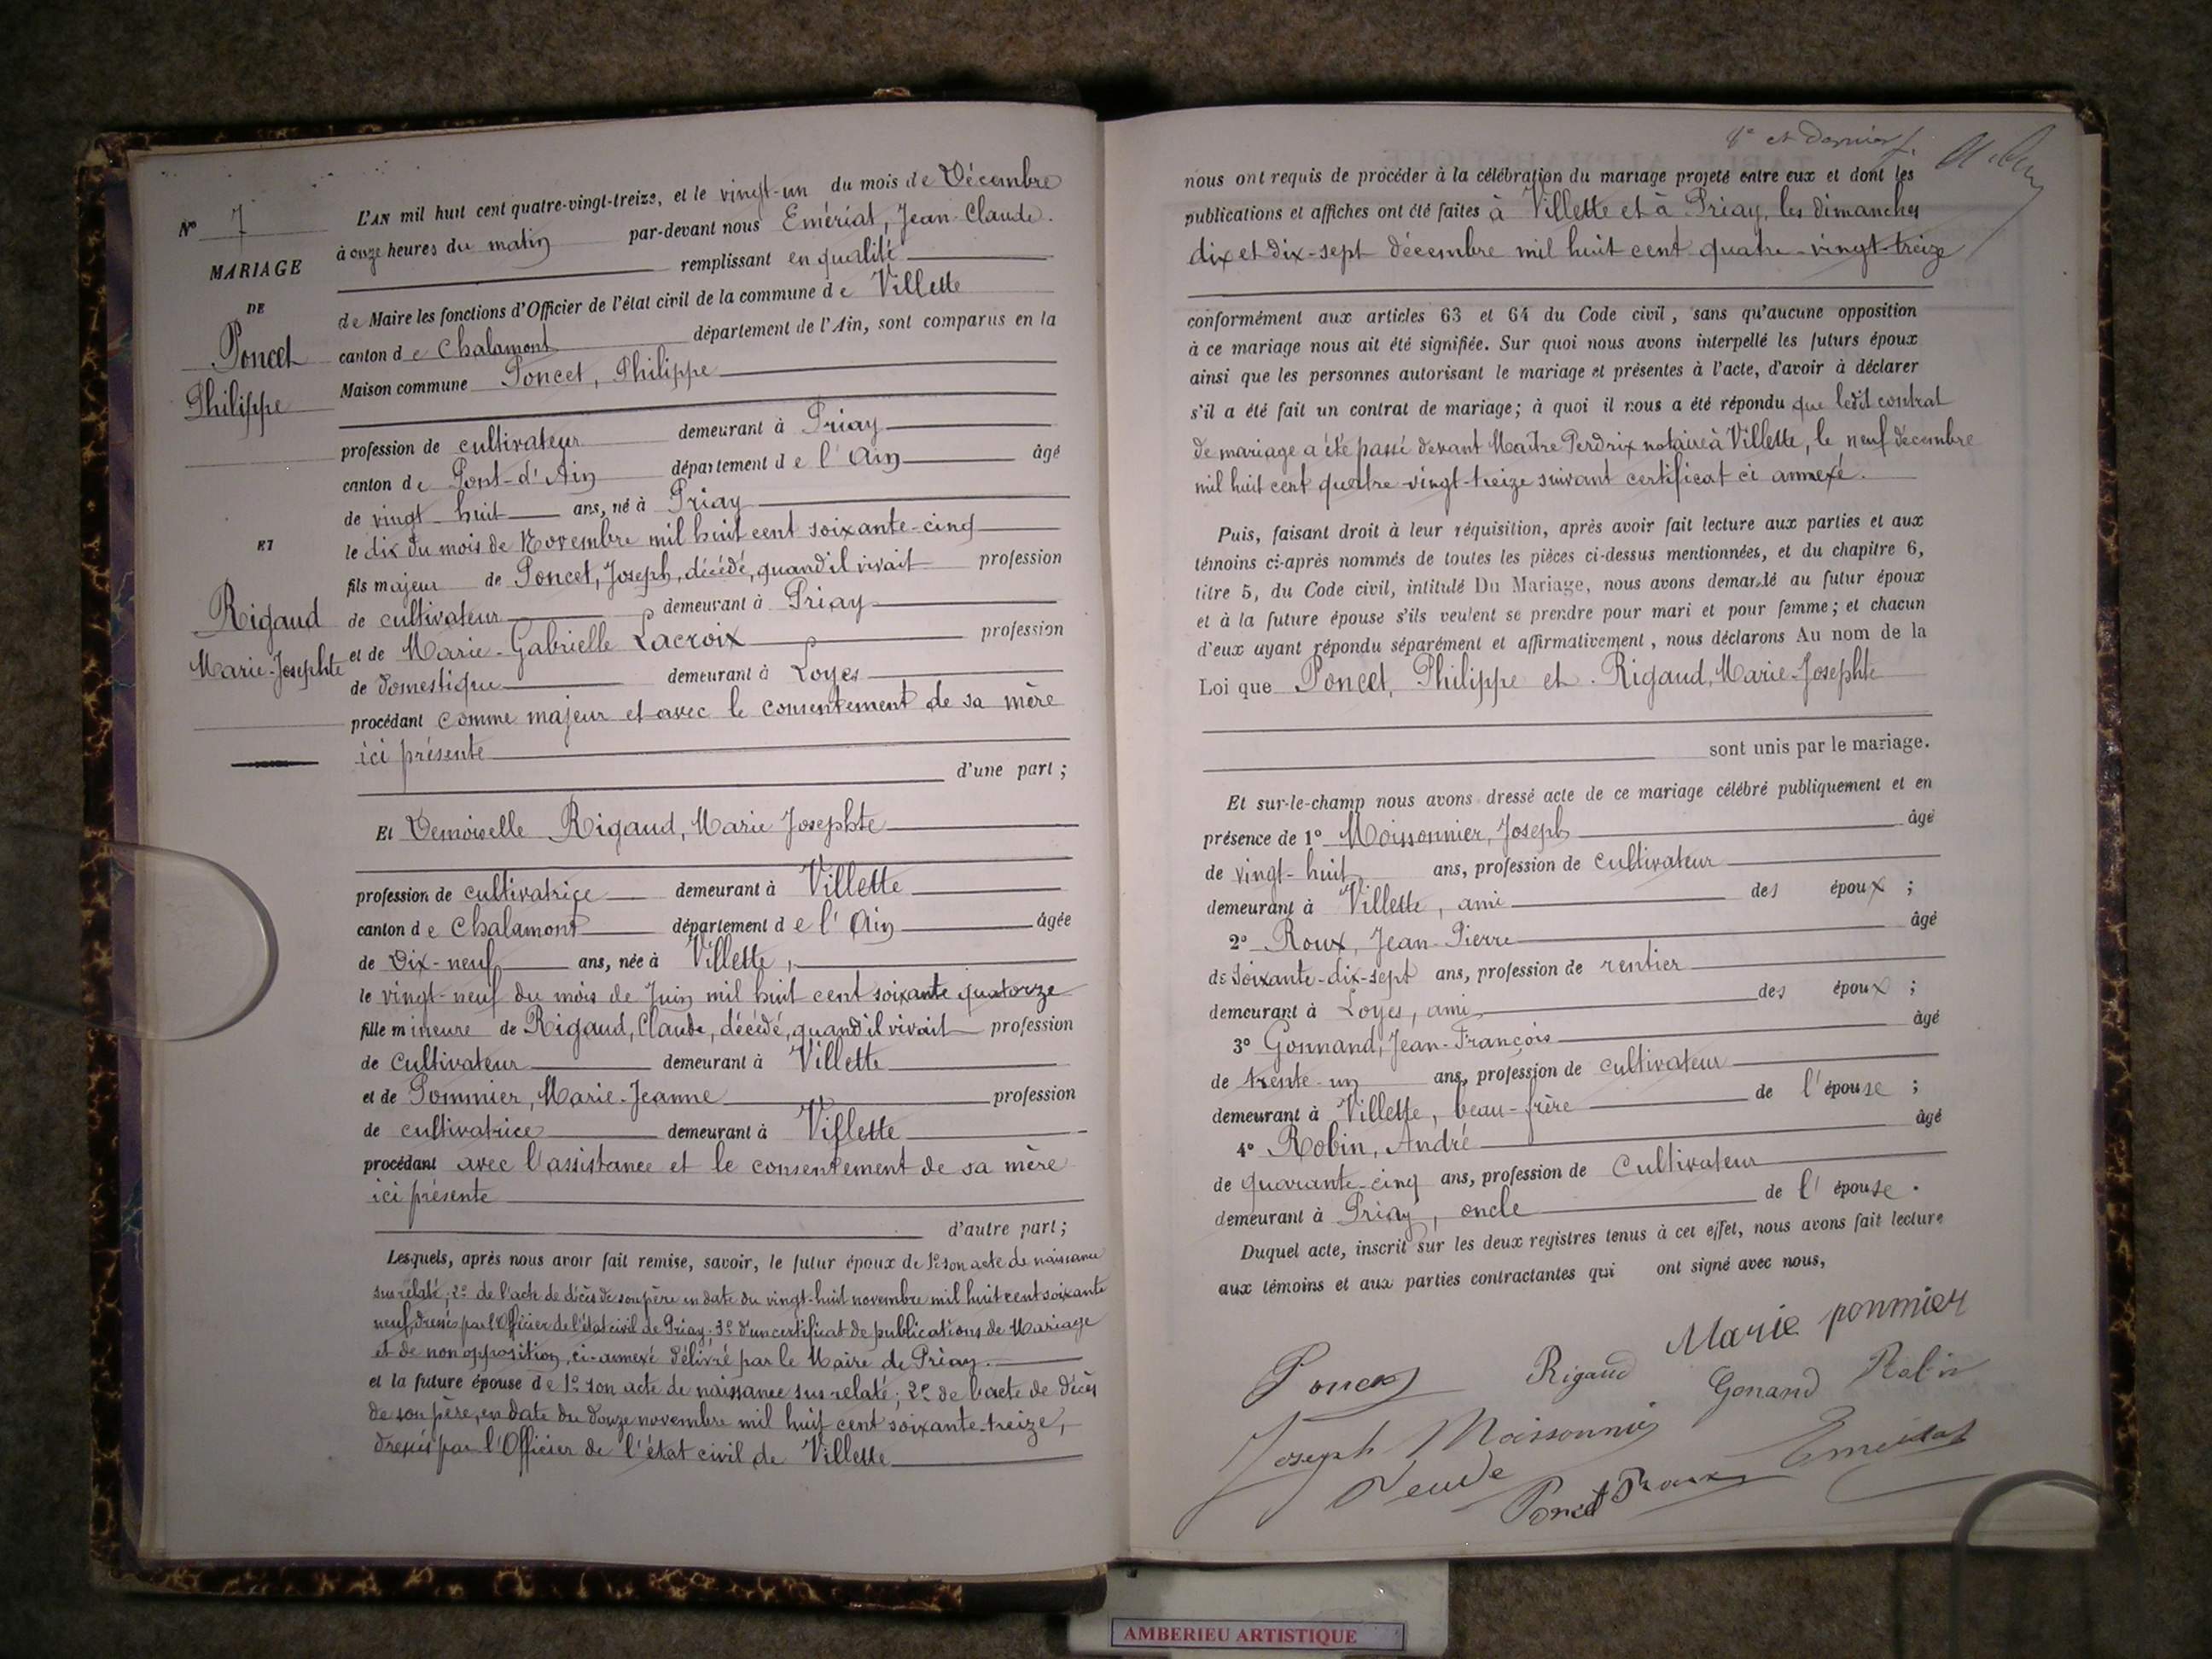 N° 7
MARIAGE
DE
Poncet
Philippe
ET
Rigaud
Marie-Josephte
L'AN mil huit cent quatre-vingt-treize, et le vingt-un du mois de Décembre
à onze heures du matin par-devant nous Emériat, Jean-Claude.
remplissant en qualité
de Maire les fonctions d'Officier de l'état civil de la commune de Villette
canton de Chalamont département de l'Ain, sont comparus en la
Maison commune Poncet, Philippe
profession de cultivateur demeurant à Priay
canton de Pont-d'Ain département de l'Ain âgé
de vingt huit ans, né à Priay
le dix du mois de Novembre mil huit cent soixante-cinq
fils majeur de Poncet, Joseph, décédé, quand il vivait profession
de cultivateur demeurant à Priay
et de Marie-Gabrielle Lacroix profession
de domestique demeurant à Loyes
procédant comme majeur et avec le consentement de sa mère
ici présente
d'une part ;
Et Demoiselle Rigaud, Marie Josephte
profession de cultivatrice demeurant à Villette
canton de Chalamont département de l'Ain âgée
de Dix-neuf ans, née à Villette,
le vingt-neuf du mois de Juin mil huit cent soixante quatorze
fille mineure de Rigaud, Claude, décédé, quand il vivait profession
de cultivateur demeurant à Villette
et de Pommier, Marie-Jeanne profession
de cultivatrice demeurant à Villette
procédant avec l'assistance et le consentement de sa mère
ici présente
d'autre part ;
Lesquels, après nous avoir fait remise, savoir, le futur époux de 1° son acte de naissance
sus relaté ; 2° de l'acte de décès de son père en date du vingt-huit novembre mil huit cent soixante
neuf, dressés par l'Officier de l'état civil de Priay ; 3° d'un certificat de publications de Mariage
et de non opposition, ci-annexé délivré par le Maire de Priay.
et la future épouse de 1° son acte de naissance sus relaté ; 2° de l'acte de décès
de son père, en date du douze novembre mil huit cent soixante-treize,
dressés par l'Officier de l'état civil de Villette
8e et dernier f.
nous ont requis de procéder à la célébration du mariage projeté entre eux et dont les
publications et affiches ont été faites à Villette et à Priay, les dimanches
dix et dix-sept décembre mil huit cent quatre-vingt-treize
conformément aux articles 63 et 64 du Code civil, sans qu'aucune opposition
à ce mariage nous ait été signifiée. Sur quoi nous avons interpellé les futurs époux
ainsi que les personnes autorisant le mariage et présentes à l'acte, d'avoir à déclarer
s'il a été fait un contrat de mariage ; à quoi il nous a été répondu que ledit contrat
de mariage a été passé devant Maître Perdrix notaire à Villette, le neuf décembre
mil huit cent quatre-vingt-treize suivant certificat ci annexé.
Puis, faisant droit à leur réquisition, après avoir fait lecture aux parties et aux
témoins ci-après nommés de toutes les pièces ci-dessus mentionnées, et du chapitre 6,
titre 5, du Code civil, intitulé Du Mariage, nous avons demandé au futur époux
et à la future épouse s'ils veulent se prendre pour mari et pour femme ; et chacun
d'eux ayant répondu séparément et affirmativement, nous déclarons Au nom de la
Loi que Poncet, Philippe et Rigaud, Marie-Josephte
sont unis par le mariage.
Et sur-le-champ nous avons dressé acte de ce mariage célébré publiquement et en
présence de 1° Moissonnier, Joseph âgé
de vingt-huit ans, profession de cultivateur
demeurant à Villette, ami des époux ;
2° Roux, Jean-Pierre âgé
de soixante-dix-sept ans, profession de rentier
demeurant à Loyes, ami des époux ;
3° Gonnand, Jean-François âgé
de trente-un ans, profession de cultivateur
demeurant à Villette, beau-frère de l'épouse ;
4° Robin, André âgé
de quarante-cinq ans, profession de Cultivateur
demeurant à Priay, oncle de l'épouse.
Duquel acte, inscrit sur les deux registres tenus à cet effet, nous avons fait lecture
aux témoins et aux parties contractantes qui ont signé avec nous,
Marie ponmier
Poncet Rigaud Gonand Robin
Joseph Moissonnier
Veuve Poncet Roux Emériat
AMBERIEU ARTISTIQUE